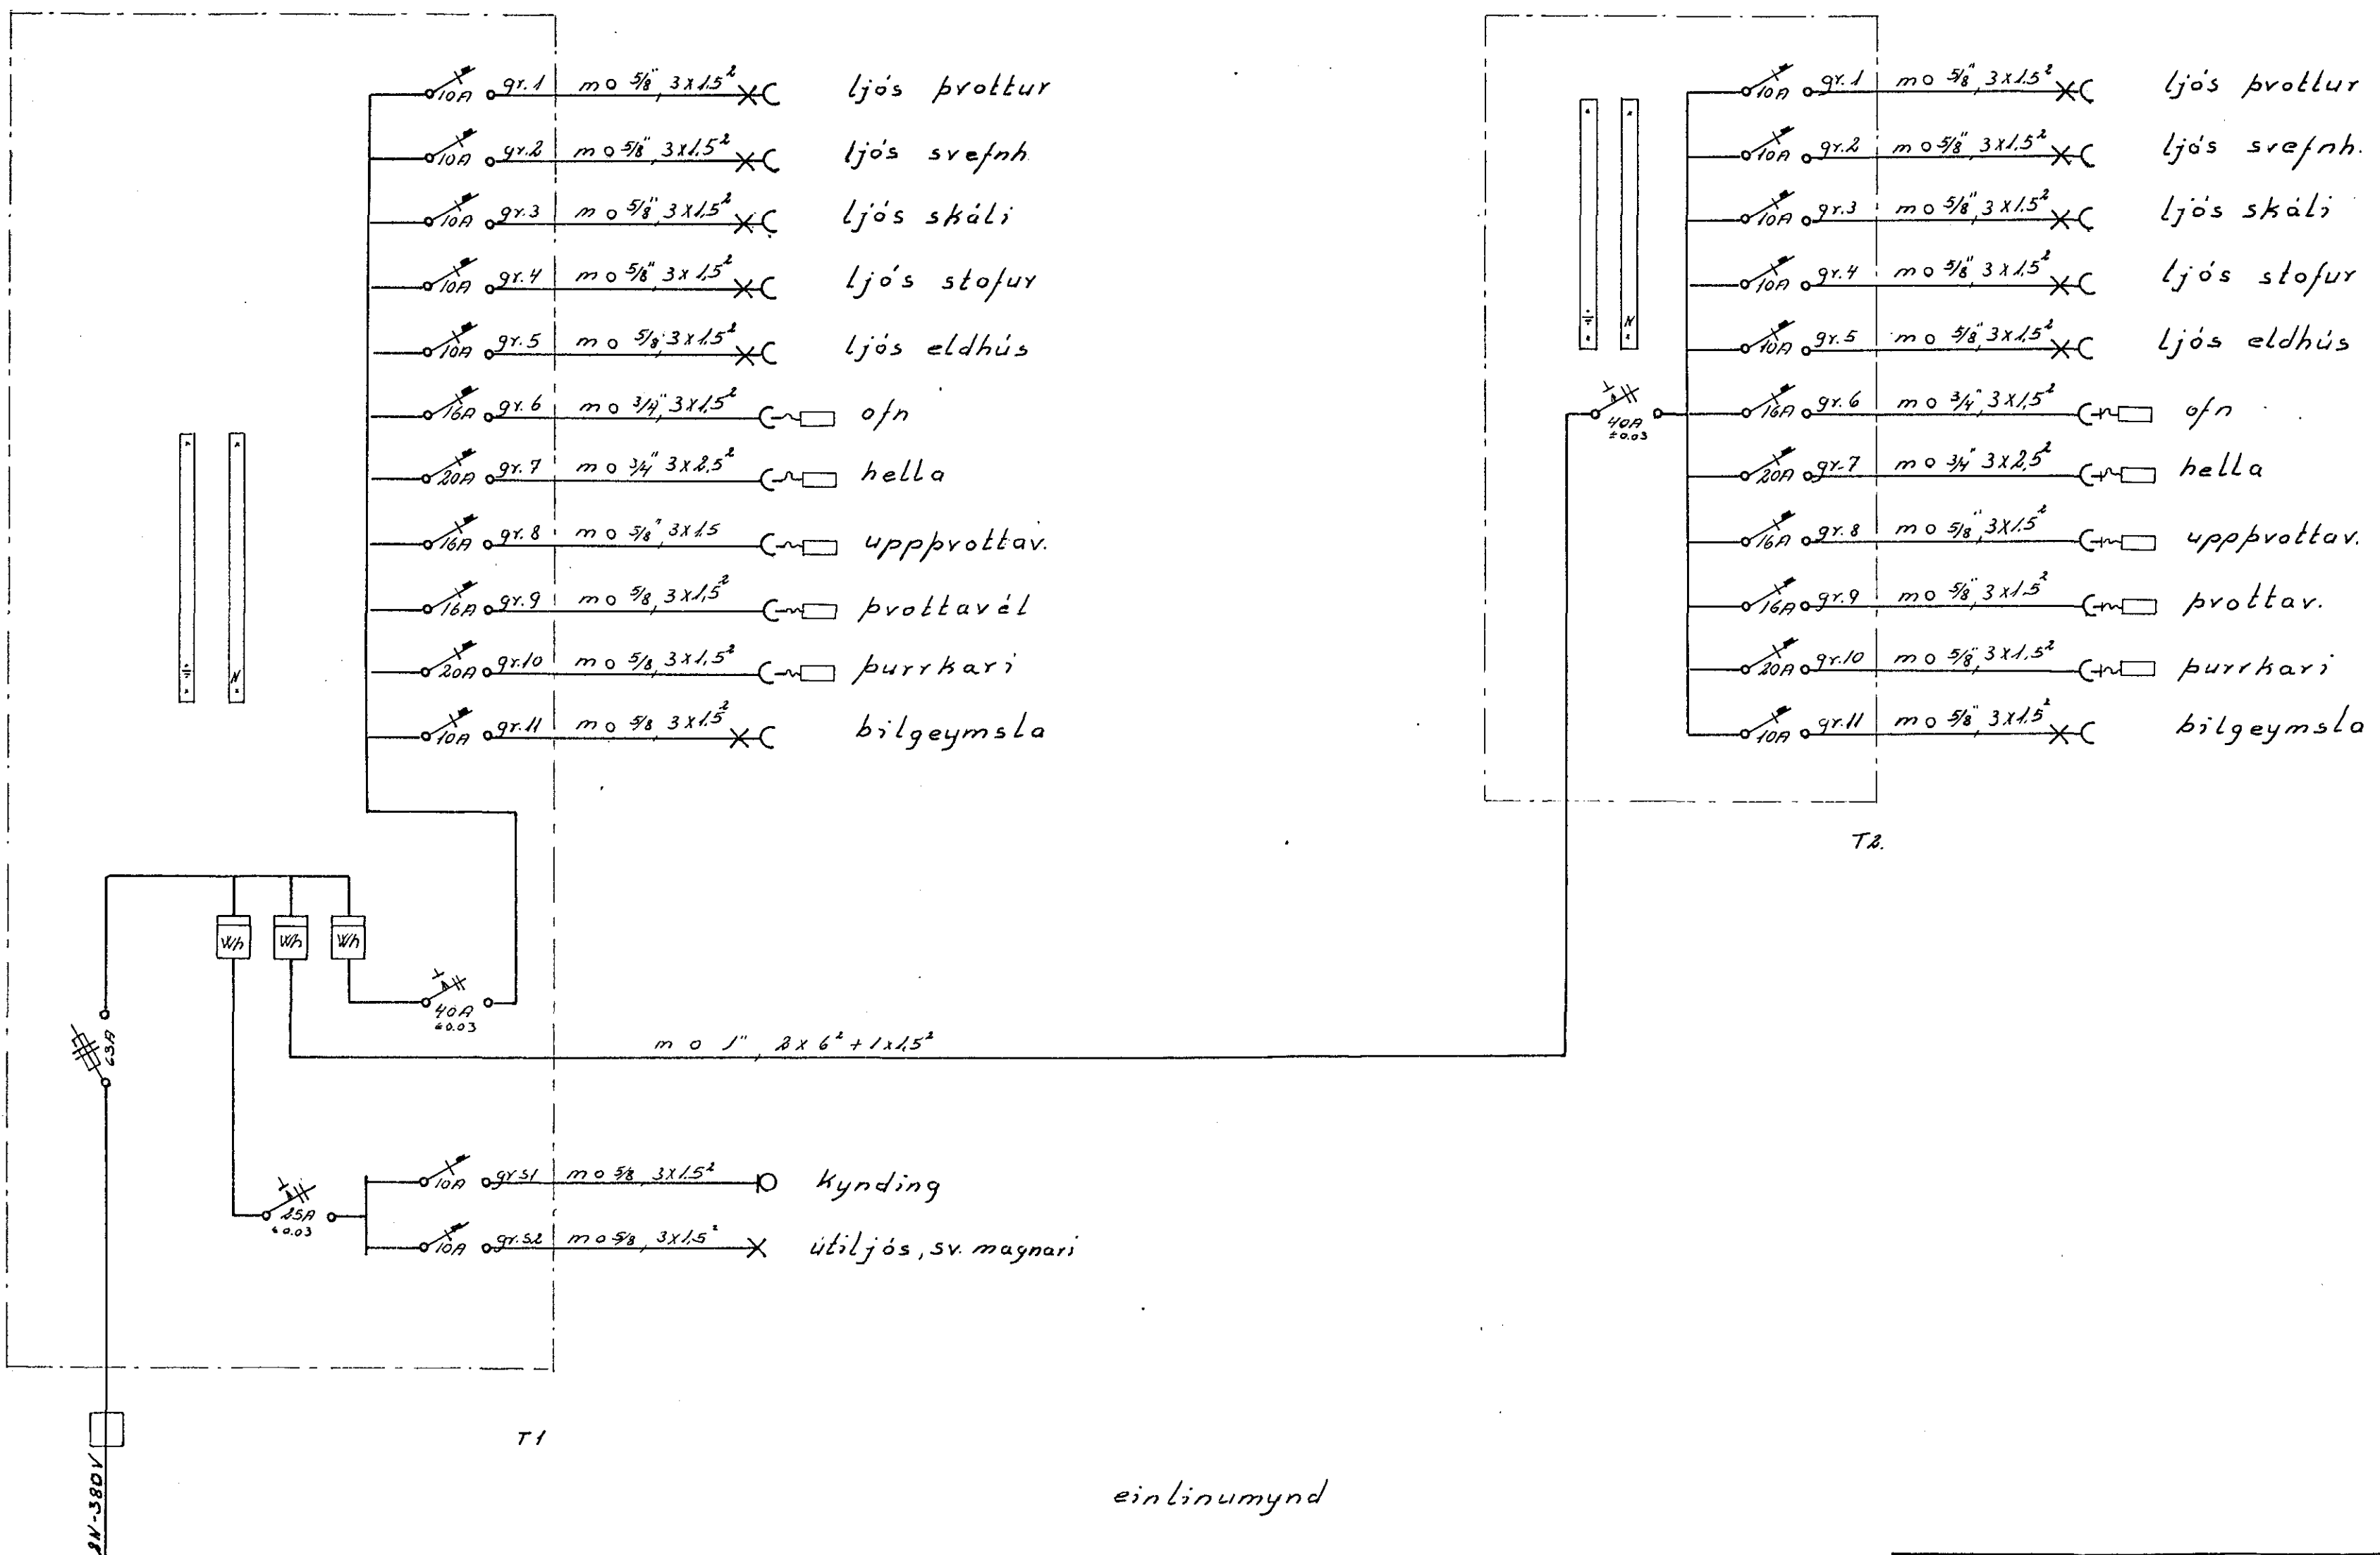 10A gr.1 m o 5/8", 3x1.5² ljós þvottur
10A gr.2 m o 5/8", 3x1,5² ljós svefnh.
10A gr.3 m o 5/8" 3x1,5² ljós skáli
10A gr.4 m o 5/8", 3x1,5² ljós stofur
10A gr.5 m o 5/8, 3x1,5² ljós eldhús
16A gr.6 m o 3/4", 3x1,5² ofn
20A gr.7 m o 3/4" 3x2,5² hella
16A gr.8 m o 5/8", 3x1,5 uppþvottav.
16A gr.9 m o 5/8, 3x1,5² þvottavél
20A gr.10 m o 5/8, 3x1,5² þurrkari
10A gr.11 m o 5/8, 3x1.5² bílgeymsla
N
Wh Wh Wh
40A
±0.03
63A
m o 1", 2x6² + 1x1,5²
25A
±0.03
10A gr.S1 m o 5/8, 3x1.5² kynding
10A gr.S2 m o 5/8, 3x1,5² útiljós, sv. magnari
T1
N-380V
10A gr.1 m o 5/8", 3x1,5² ljós þvottur
10A gr.2 m o 5/8", 3x1,5² ljós svefnh.
10A gr.3 m o 5/8", 3x1,5² ljós skáli
10A gr.4 m o 5/8", 3x1,5² ljós stofur
10A gr.5 m o 5/8", 3x1,5² ljós eldhús
N
40A
±0.03
16A gr.6 m o 3/4", 3x1,5² ofn
20A gr.7 m o 3/4" 3x2,5² hella
16A gr.8 m o 5/8", 3x1,5² uppþvottav.
16A gr.9 m o 5/8", 3x1.5² þvottav.
20A gr.10 m o 5/8", 3x1,5² þurrkari
10A gr.11 m o 5/8", 3x1,5² bílgeymsla
T2.
einlinumynd